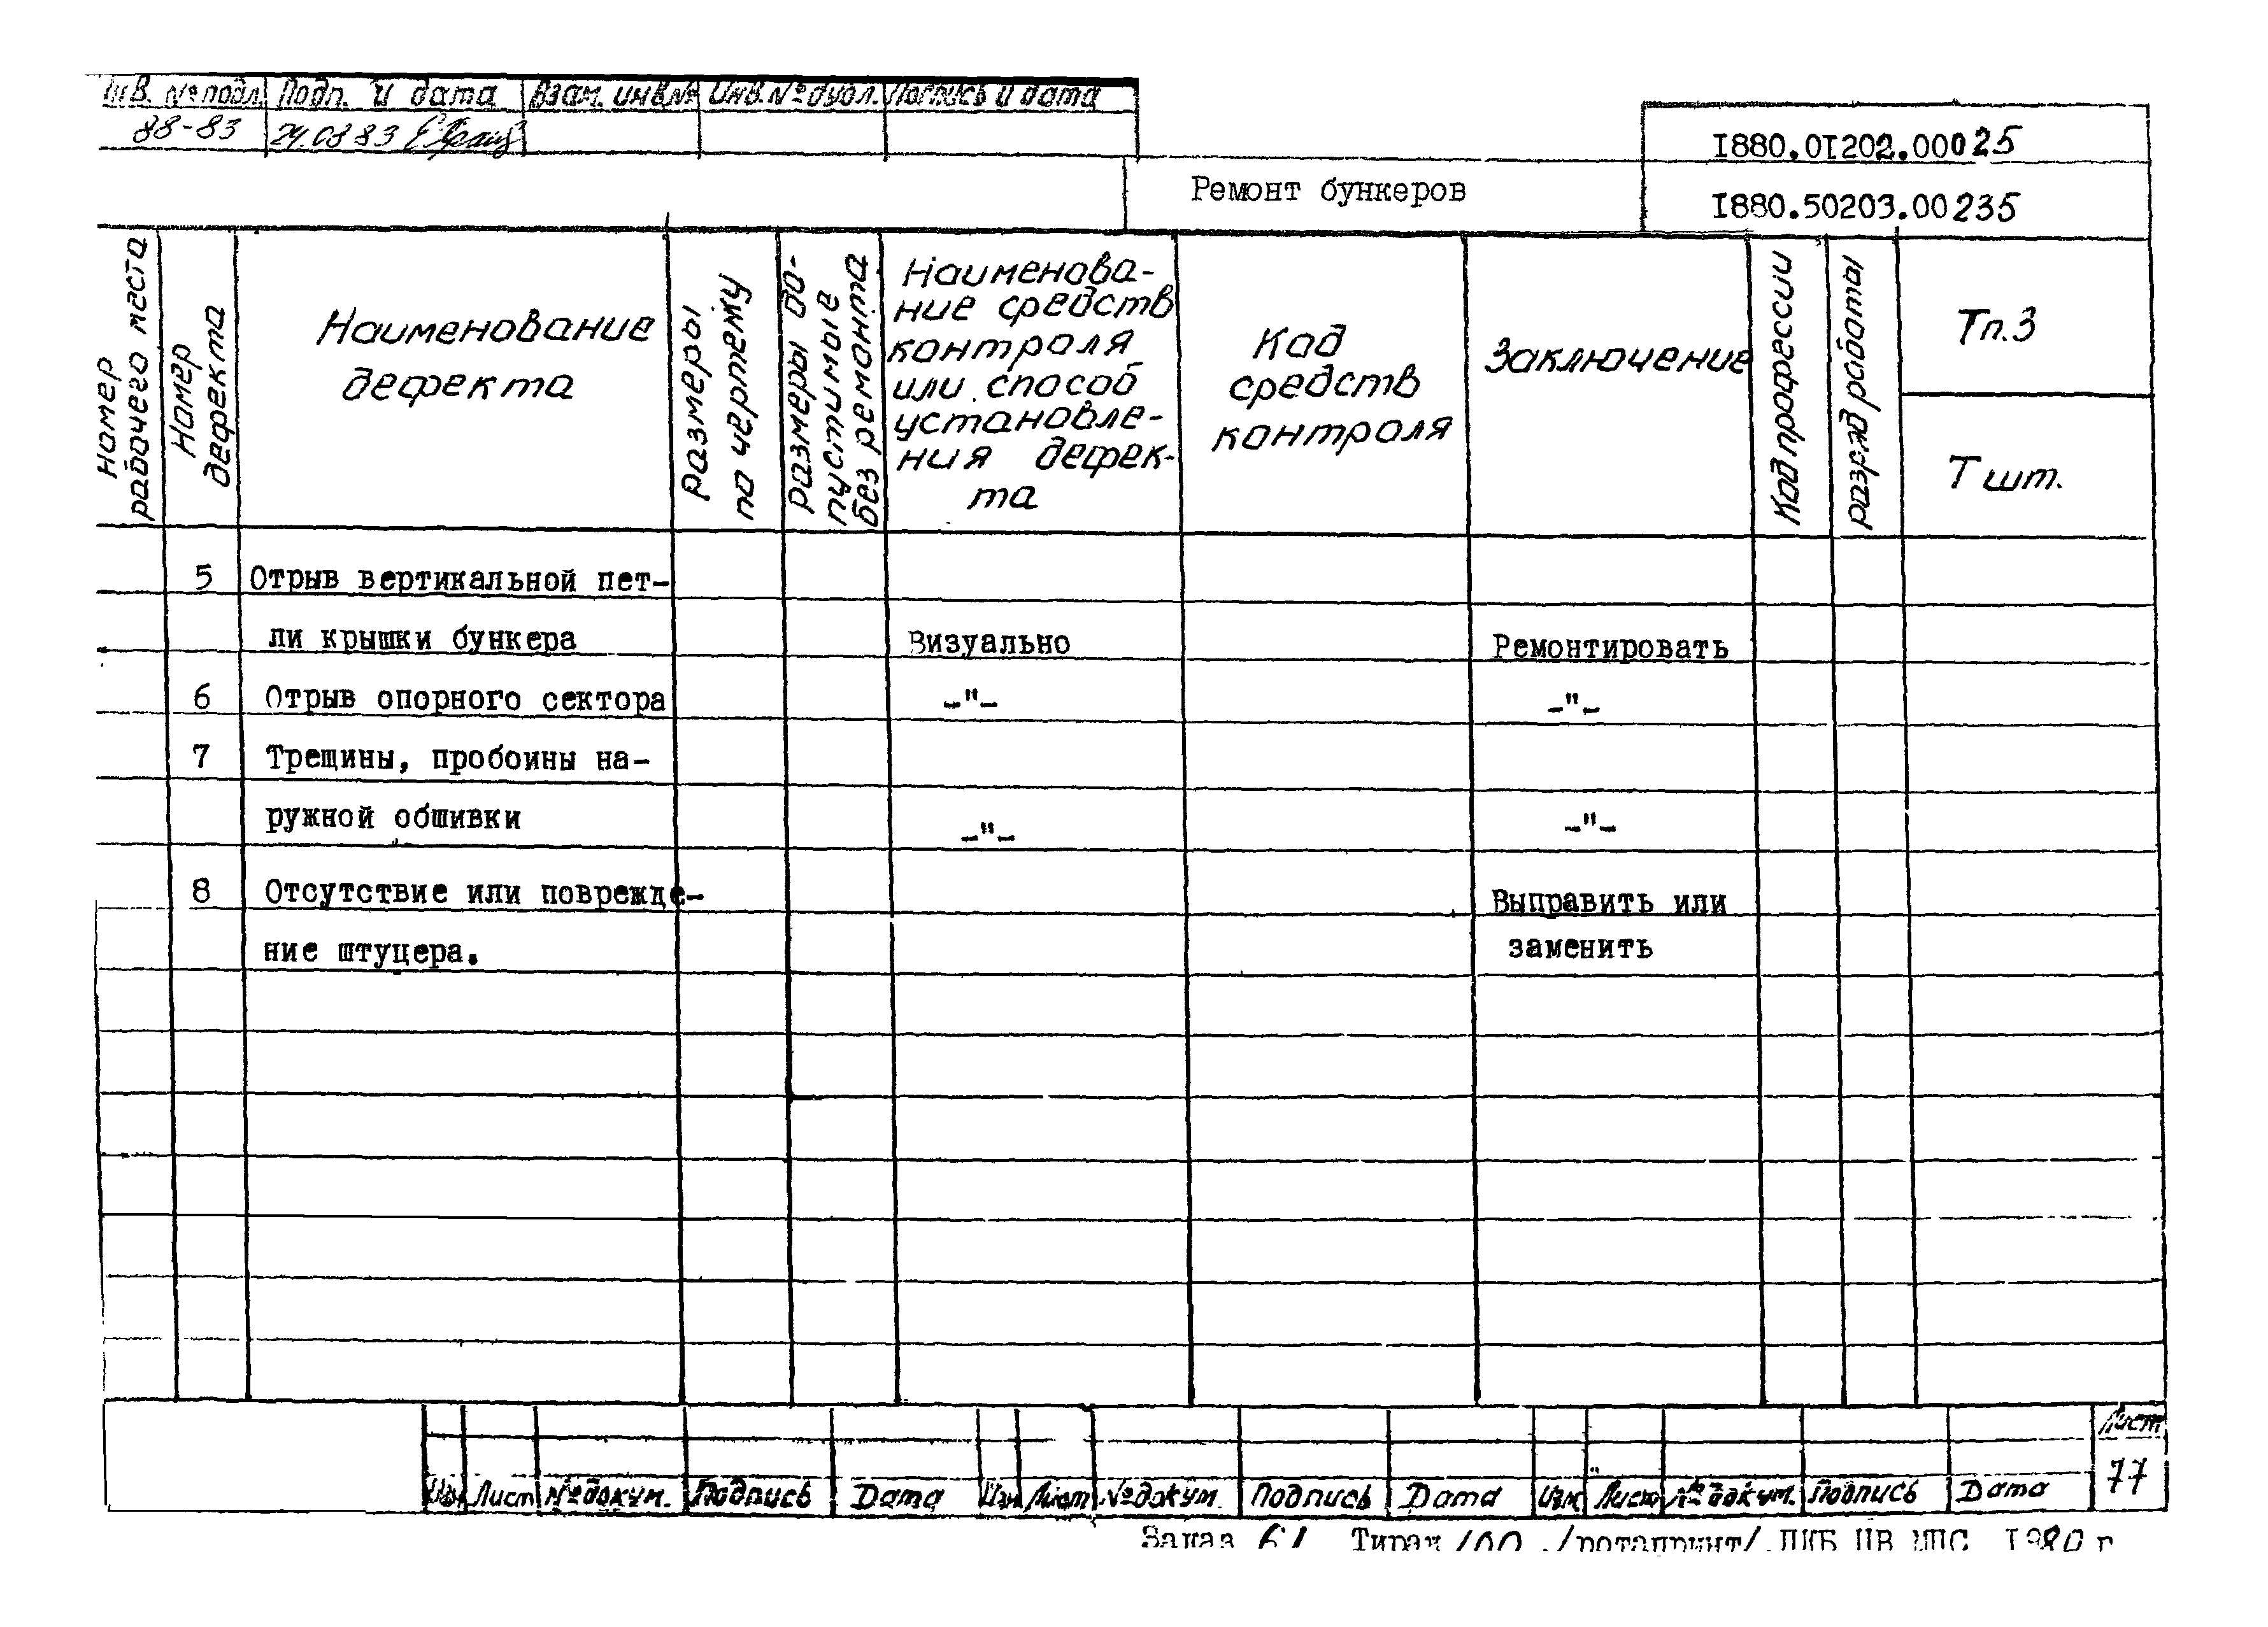 Инв. № подл. Подп. и дата Взам. инв.№ Инв.№ дубл. Подпись и дата
88-83 24.08 83
I880.0I202.00025
Ремонт бункеров
I880.50203.00235
Номер
рабочего места
Номер
дефекта
Наименование
дефекта
Размеры
по чертежу
Размеры до-
пустимые
без ремонта
Наименова-
ние средств
контроля
или способ
установле-
ния дефек-
та
Код
средств
контроля
Заключение
Код профессии
Разряд работы
Тп.З
Т шт.
5 Отрыв вертикальной пет-
ли крышки бункера Визуально Ремонтировать
6 Отрыв опорного сектора -"- -"-
7 Трещины, пробоины на-
ружной обшивки -"- -"-
8 Отсутствие или поврежде- Выправить или
ние штуцера. заменить
Лист
77
Изм Лист № докум. Подпись Дата Изм Лист № докум. Подпись Дата Изм Лист № докум. Подпись Дата
Заказ 61 Тираж 100 ./ротапринт/.ПКБ ЦВ МПС I980 г